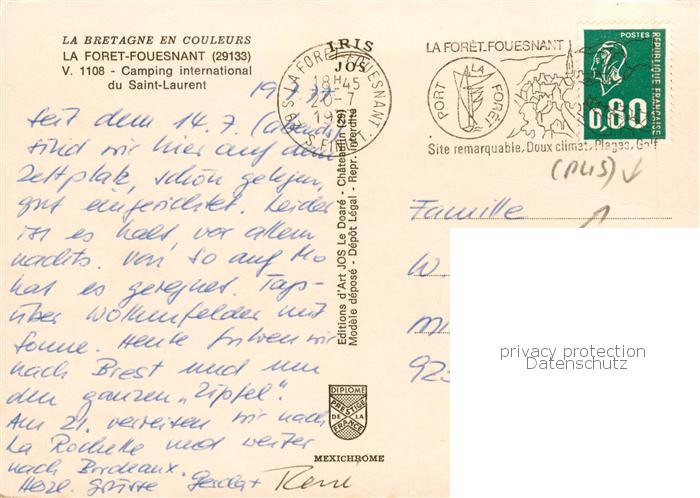 LA BRETAGNE EN COULEURS
LA FORET-FOUESNANT (29133)
V. 1108 - Camping international
du Saint-Laurent
19.7.77
Seit dem 14.7. (abends)
sind wir hier auf dem
Zeltplatz, schön gelegen,
gut eingerichtet. Leider
ist es kalt, vor allem
nachts. Von So auf Mo
hat es geregnet. Tags-
über Wolkenfelder mit
Sonne. Heute fuhren wir
nach Brest und um
den ganzen "Zipfel".
Am 21. verreisen wir nach
La Rochelle und weiter
nach Bordeaux.
Herzl. Grüsse
René
IRIS
JOS
Editions d'Art JOS Le Doaré - Châteaulin (29)
Modèle déposé - Dépôt Légal - Repr. Interdite
DIPLOME
PRESTIGE
DE LA
FRANCE
MEXICHROME
29 S LA FORET FOUESNANT
18H45
20-7
19
S. FIN
LA FORÊT.FOUESNANT
PORT LA FORÊT
Site remarquable, Doux climat, Plages, Golf
POSTES
REPUBLIQUE FRANÇAISE
0,80
Famille
W
923
privacy protection
Datenschutz